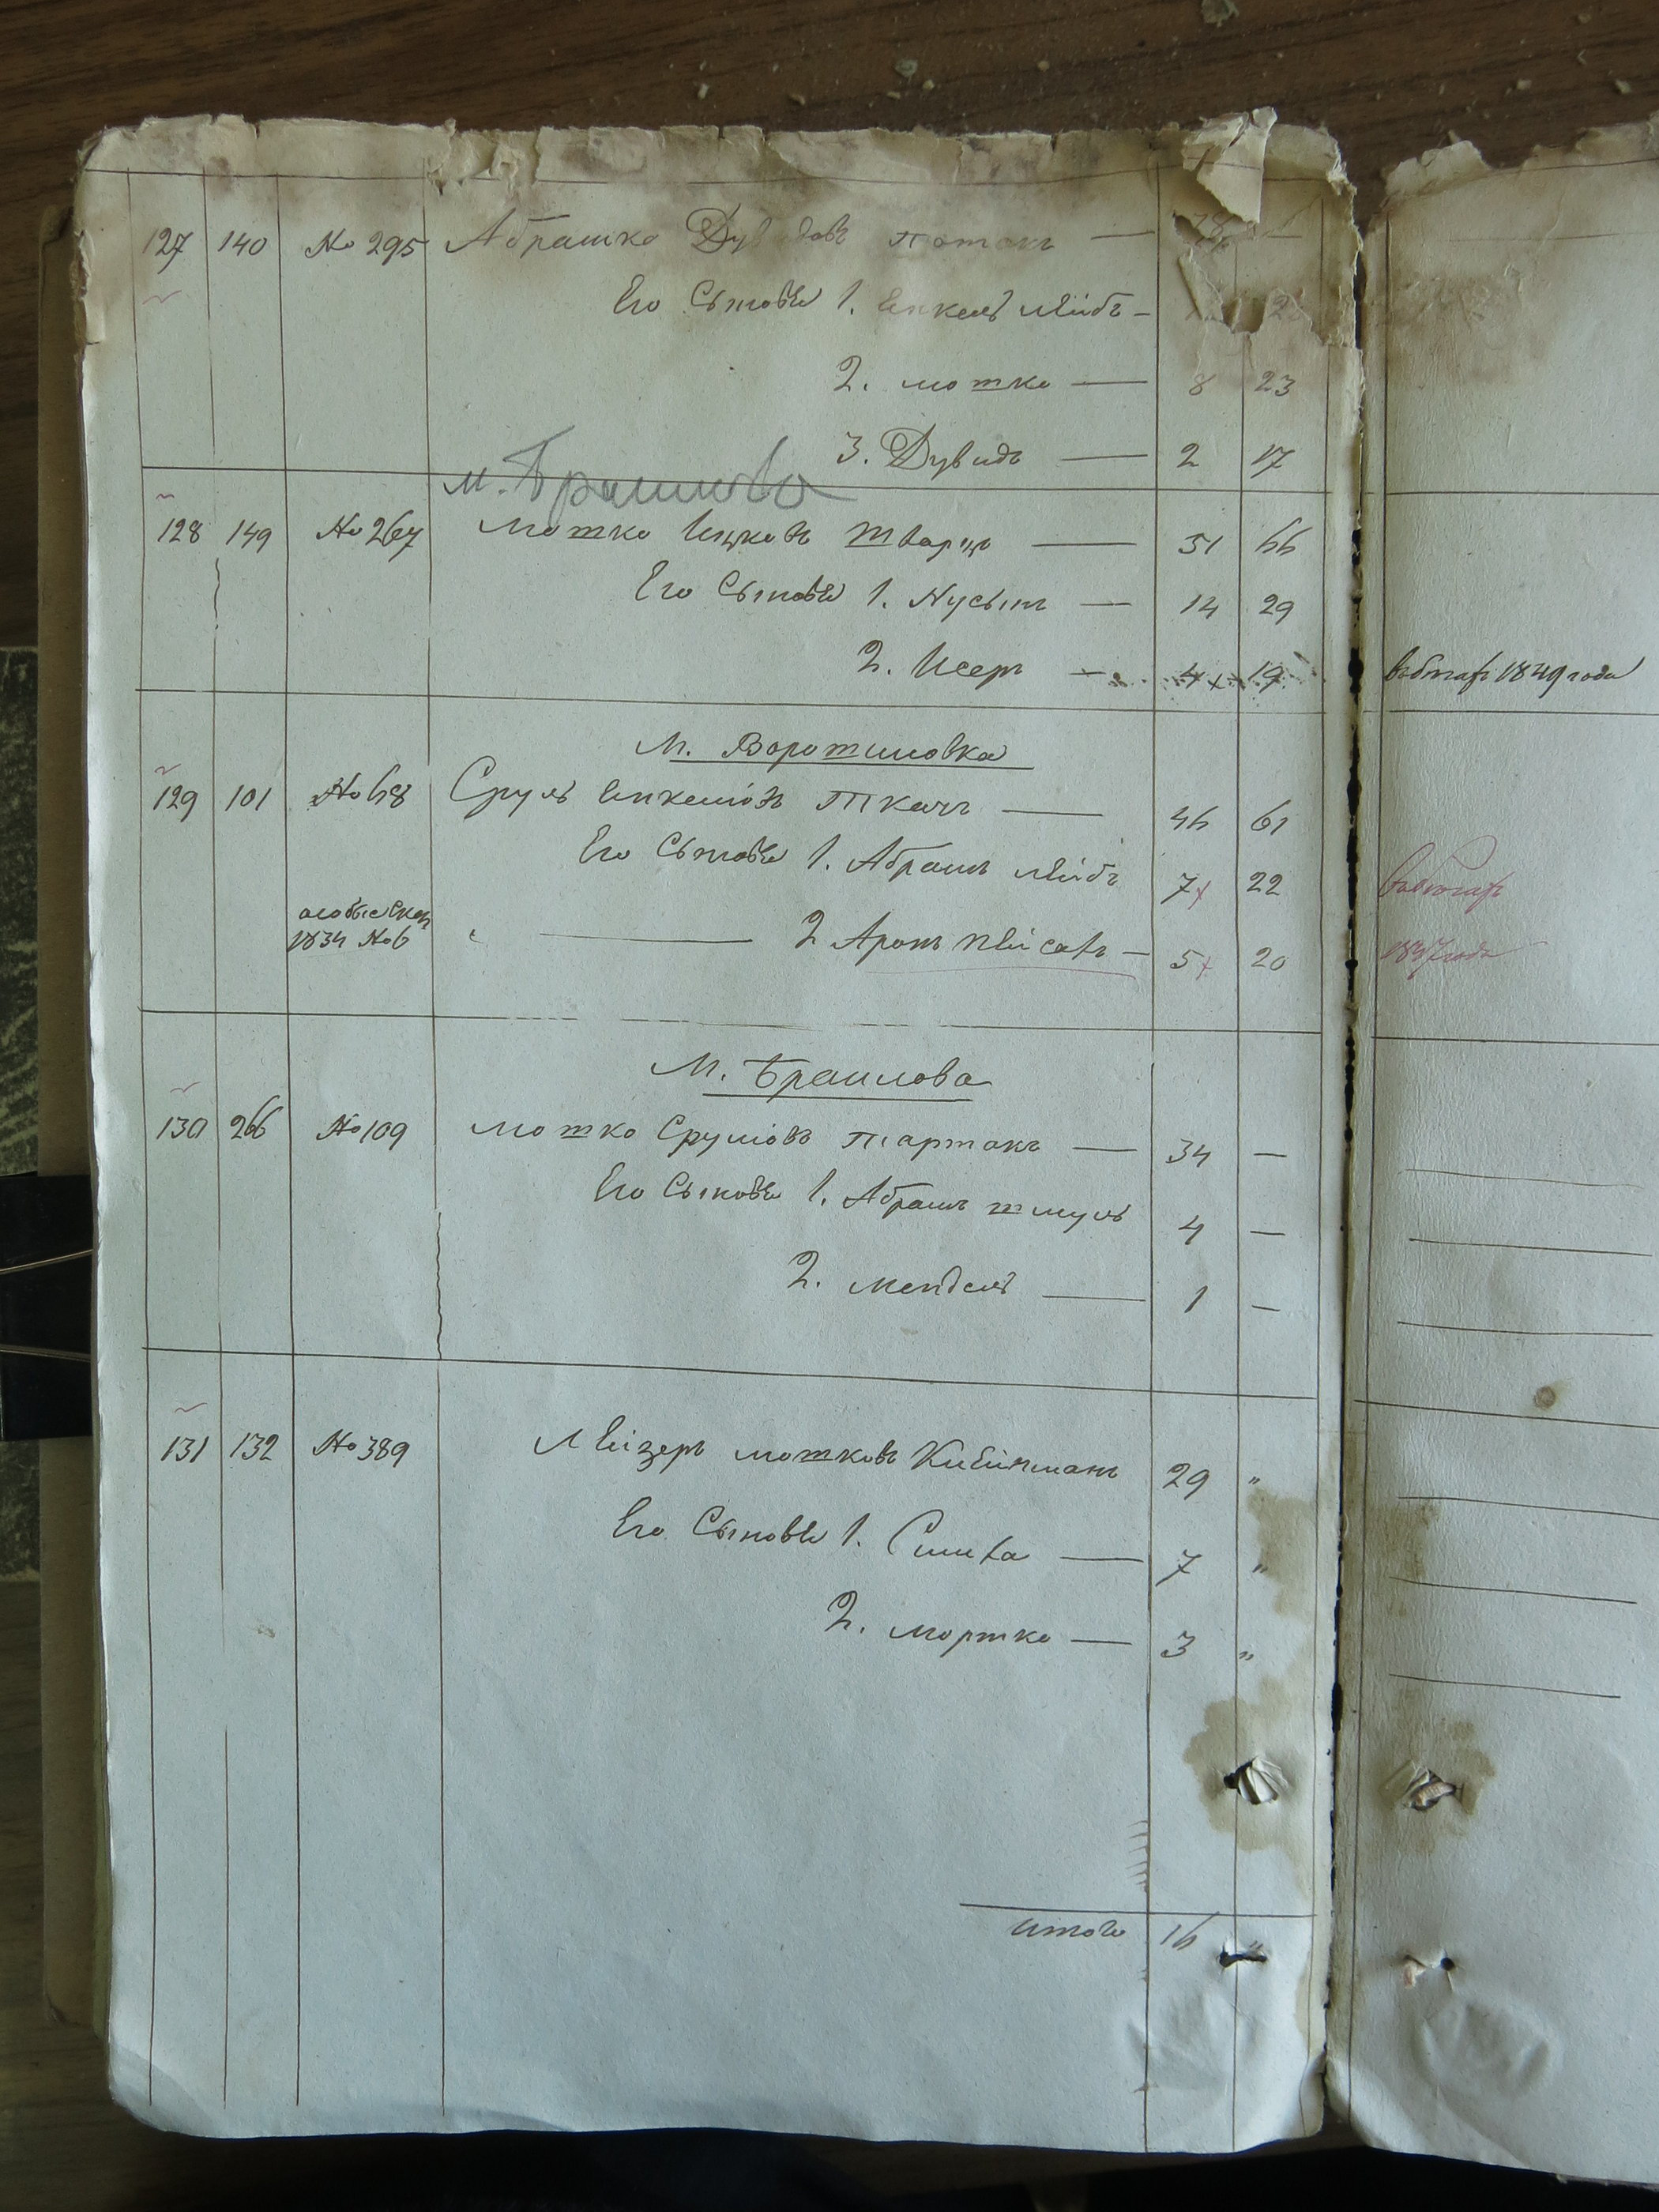 127 140 № 295 Абрашко Дувидовъ — 
Его Сыновья 1. Янкель Лейбъ —
2. мошко — 8 23
3. Дувидъ — 2 17
м. Браилова
128 149 № 267 Мошко Ицковъ Шварцъ — 51 66
Его Сыновья 1. Нусынъ — 14 29
2. Исеръ — 4 х 19 1849 года
М. Ворошиловка
129 101 № 68 Сруль Янкелiовъ Ткачъ — 46 61
Его Сыновья 1. Абрамъ Лейбъ 7 х 22
особые скаж
1834 № 6 " — 2 Аронъ 5 х 20 года
М. Браилова
130 266 № 109 Мошко Срулiовъ Тартакъ — 34 —
Его Сыновья 1. Абрамъ шмуль 4 —
2. мендель — 1 —
131 132 № 389 Лейзеръ мошковъ 29 "
Его Сыновья 1. Симха — 7 "
2. мортко — 3 "
итого 16 "